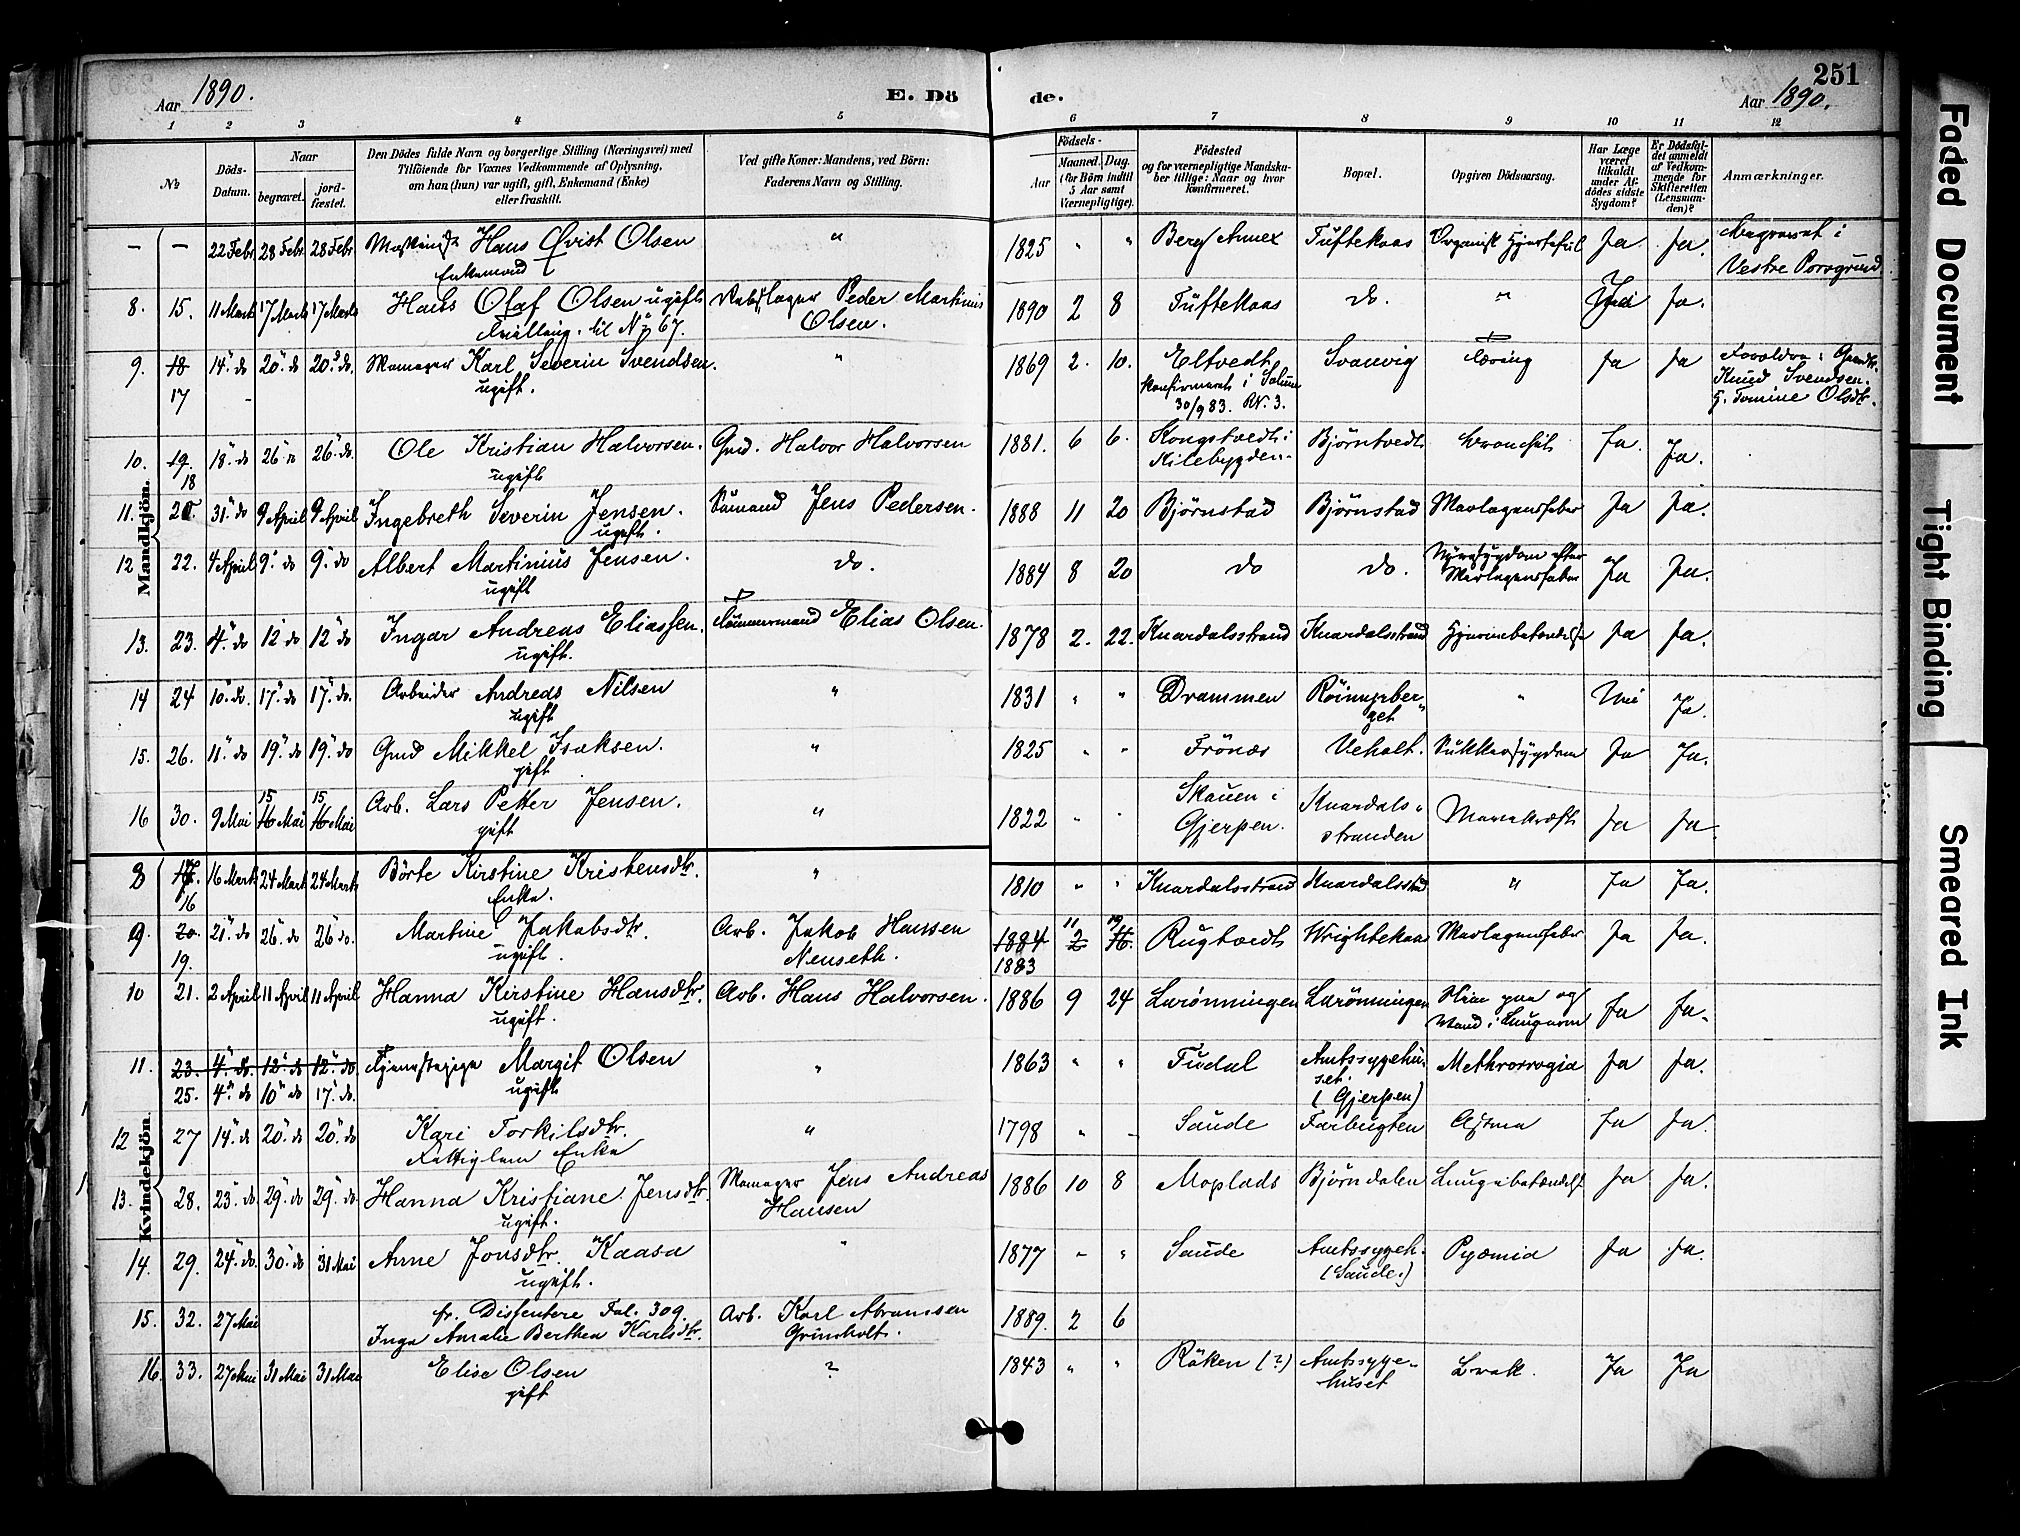 Aar 1890.
E. Dö
de.
251
Aar 1890.
1 2 3 4 5 6 7 8 9 10 11 12
№
Döds-Datum.
Naar
begravet.
jord-fæstet.
Den Dödes fulde Navn og borgerlige Stilling (Næringsvei) med
Tilföiende for Voxnes Vedkommende af Oplysning,
om han (hun) var ugift, gift, Enkemand (Enke)
eller fraskilt.
Ved gifte Koner: Mandens, ved Börn:
Faderens Navn og Stilling.
Födsels-
Aar
Maaned. Dag.
(for Börn indtil
5 Aar samt
Værnepligtige).
Födested
og for værnepligtige Mandska-
ber tillige: Naar og hvor
konfirmeret.
Bopæl.
Opgiven Dödsaarsag.
Har Læge
været
tilkaldt
under Af-
dödes sidste
Sygdom?
Er Dödsfal-
det anmeldt
af Vedkom-
mende for
Skifteretten
(Lensman-
den)?
Anmærkninger.
Mandkjön.
– – 22 Febr 28 Febr 28 Febr Hans Qvist Olsen " 1825 " " Berg Annex Tuftekaas Organisk Hjertefeil Ja Ja. Begravet i
Enkemand Vestre Porsgrund
8. 15. 11 Marts 17 Marts 17 Marts Hans Olaf Olsen ugift Rebslager Peder Martinus 1890 2 8 Tuftekaas do. " Ja.
Tvilling til No 67. Olsen.
9. 18 14" do 20" do 20" do. Karl Severin Svendsen. " 1869 2. 10. Eltvedt, Svanvig Tæring Ja Ja Forældre:
17 ugift. Konfirmeret i Solum Knud Svendsen.
30/9 83. Nr. 3. H. Tomine Olsdtr.
10. 19. 18" do 26" 26" do. Ole Kristian Halvorsen. Gmd. Halvor Halvorsen 1881. 6 6. Kongstvedt i Björntvedt Bronchit Ja. Ja.
18 ugift Kilebygden
11. 20 31" do 9 April 9 April Ingebreth Severin Jensen. Sömand Jens Pedersen. 1888 11 20 Björnstad Björnstad Skarlagensfeber Ja Ja.
ugift.
12 22. 4 April 9" do 9" do Albert Martinius Jensen. do. 1884 8 20 do do. Nyresygdom efter Ja Ja.
ugift Skarlagensfeber
13. 23. 4" do 12" do 12" do Ingar Andreas Eliassen. Tömmermand Elias Olsen. 1878 2. 22. Knardalsstrand Knardalsstrand Hjernebetændelse Ja Ja.
ugift.
14 24 10" do. 17" do 17" do. Arbeider Andreas Nilsen " 1831 " " Drammen Röimyrber- " Nei Ja.
ugift get
15. 26. 11" do 19" do 19" do Gmd Mikkel Isaksen. " 1825 " " Frönæs Veholt. Sukkersygdom Ja Ja.
gift
16 30. 9 Mai 15 16 Mai 15 16 Mai Arb. Lars Petter Jensen. " 1822 " " Skauen i Knardals- Mavekræft Ja Ja.
gift Gjerpen. stranden
Kvindekjön.
8 17. 16 Marts 24 Marts 24 Marts Börte Kirstine Kristensdtr. " 1810 " " Knardalsstrand Knardalsstrd " Ja Ja.
16 Enke.
9. 20. 21" do 26" do 26" do. Martine Jakobsdtr. Arb. Jakob Hanssen 1884 2 11 19 Rugtvedt Wrightekaas Skarlagensfeber Ja Ja.
19. ugift. Nenseth. 1883
10 21. 2 April 11 April 11 April Hanna Kirstine Hansdtr. Arb. Hans Halvorsen. 1886 9 24 Lurönningen Lurönningen Vand i Lungerne Ja Ja.
ugift.
11. 23. 4" do. 12" do 12" do. Tjenestepige Margit Olsen " 1863 " " Tudal Amtssygehu- Methrorragia Ja Ja.
25. 4" do 10" do 17" do. ugift set. (Gjerpen)
12 27 14" do 20" do 20" do Kari Torkilsdtr. " 1798 " – Saude Farbugten Astma Ja Ja.
Fattiglem Enke
13. 28. 23" do. 29" do 29" do. Hanna Kristiane Jensdtr. Jens Andreas 1886 10 8 Moplads Björndalen Lungebetændelse Ja Ja.
ugift. Hansen
14. 29. 24" do. 30" do 31 Mai Anne Jonsdtr. Kaasa " 1877 – " Saude Amtssygeh. Pyæmia Ja Ja.
ugift. (Saude.)
15. 32. 27 Mai fr. Dissentere Fol. 309. Arb. Karl Abramsen 1889. 2 6
Inga Amalie Berthea Karlsdtr. Grinholt.
16. 33. 27 Mai 31 Mai 31 Mai Elise Olsen ? 1843 " " Röken (?) Amtssyge- Ja Ja
gift huset
Faded Document
Tight Binding
Smeared Ink